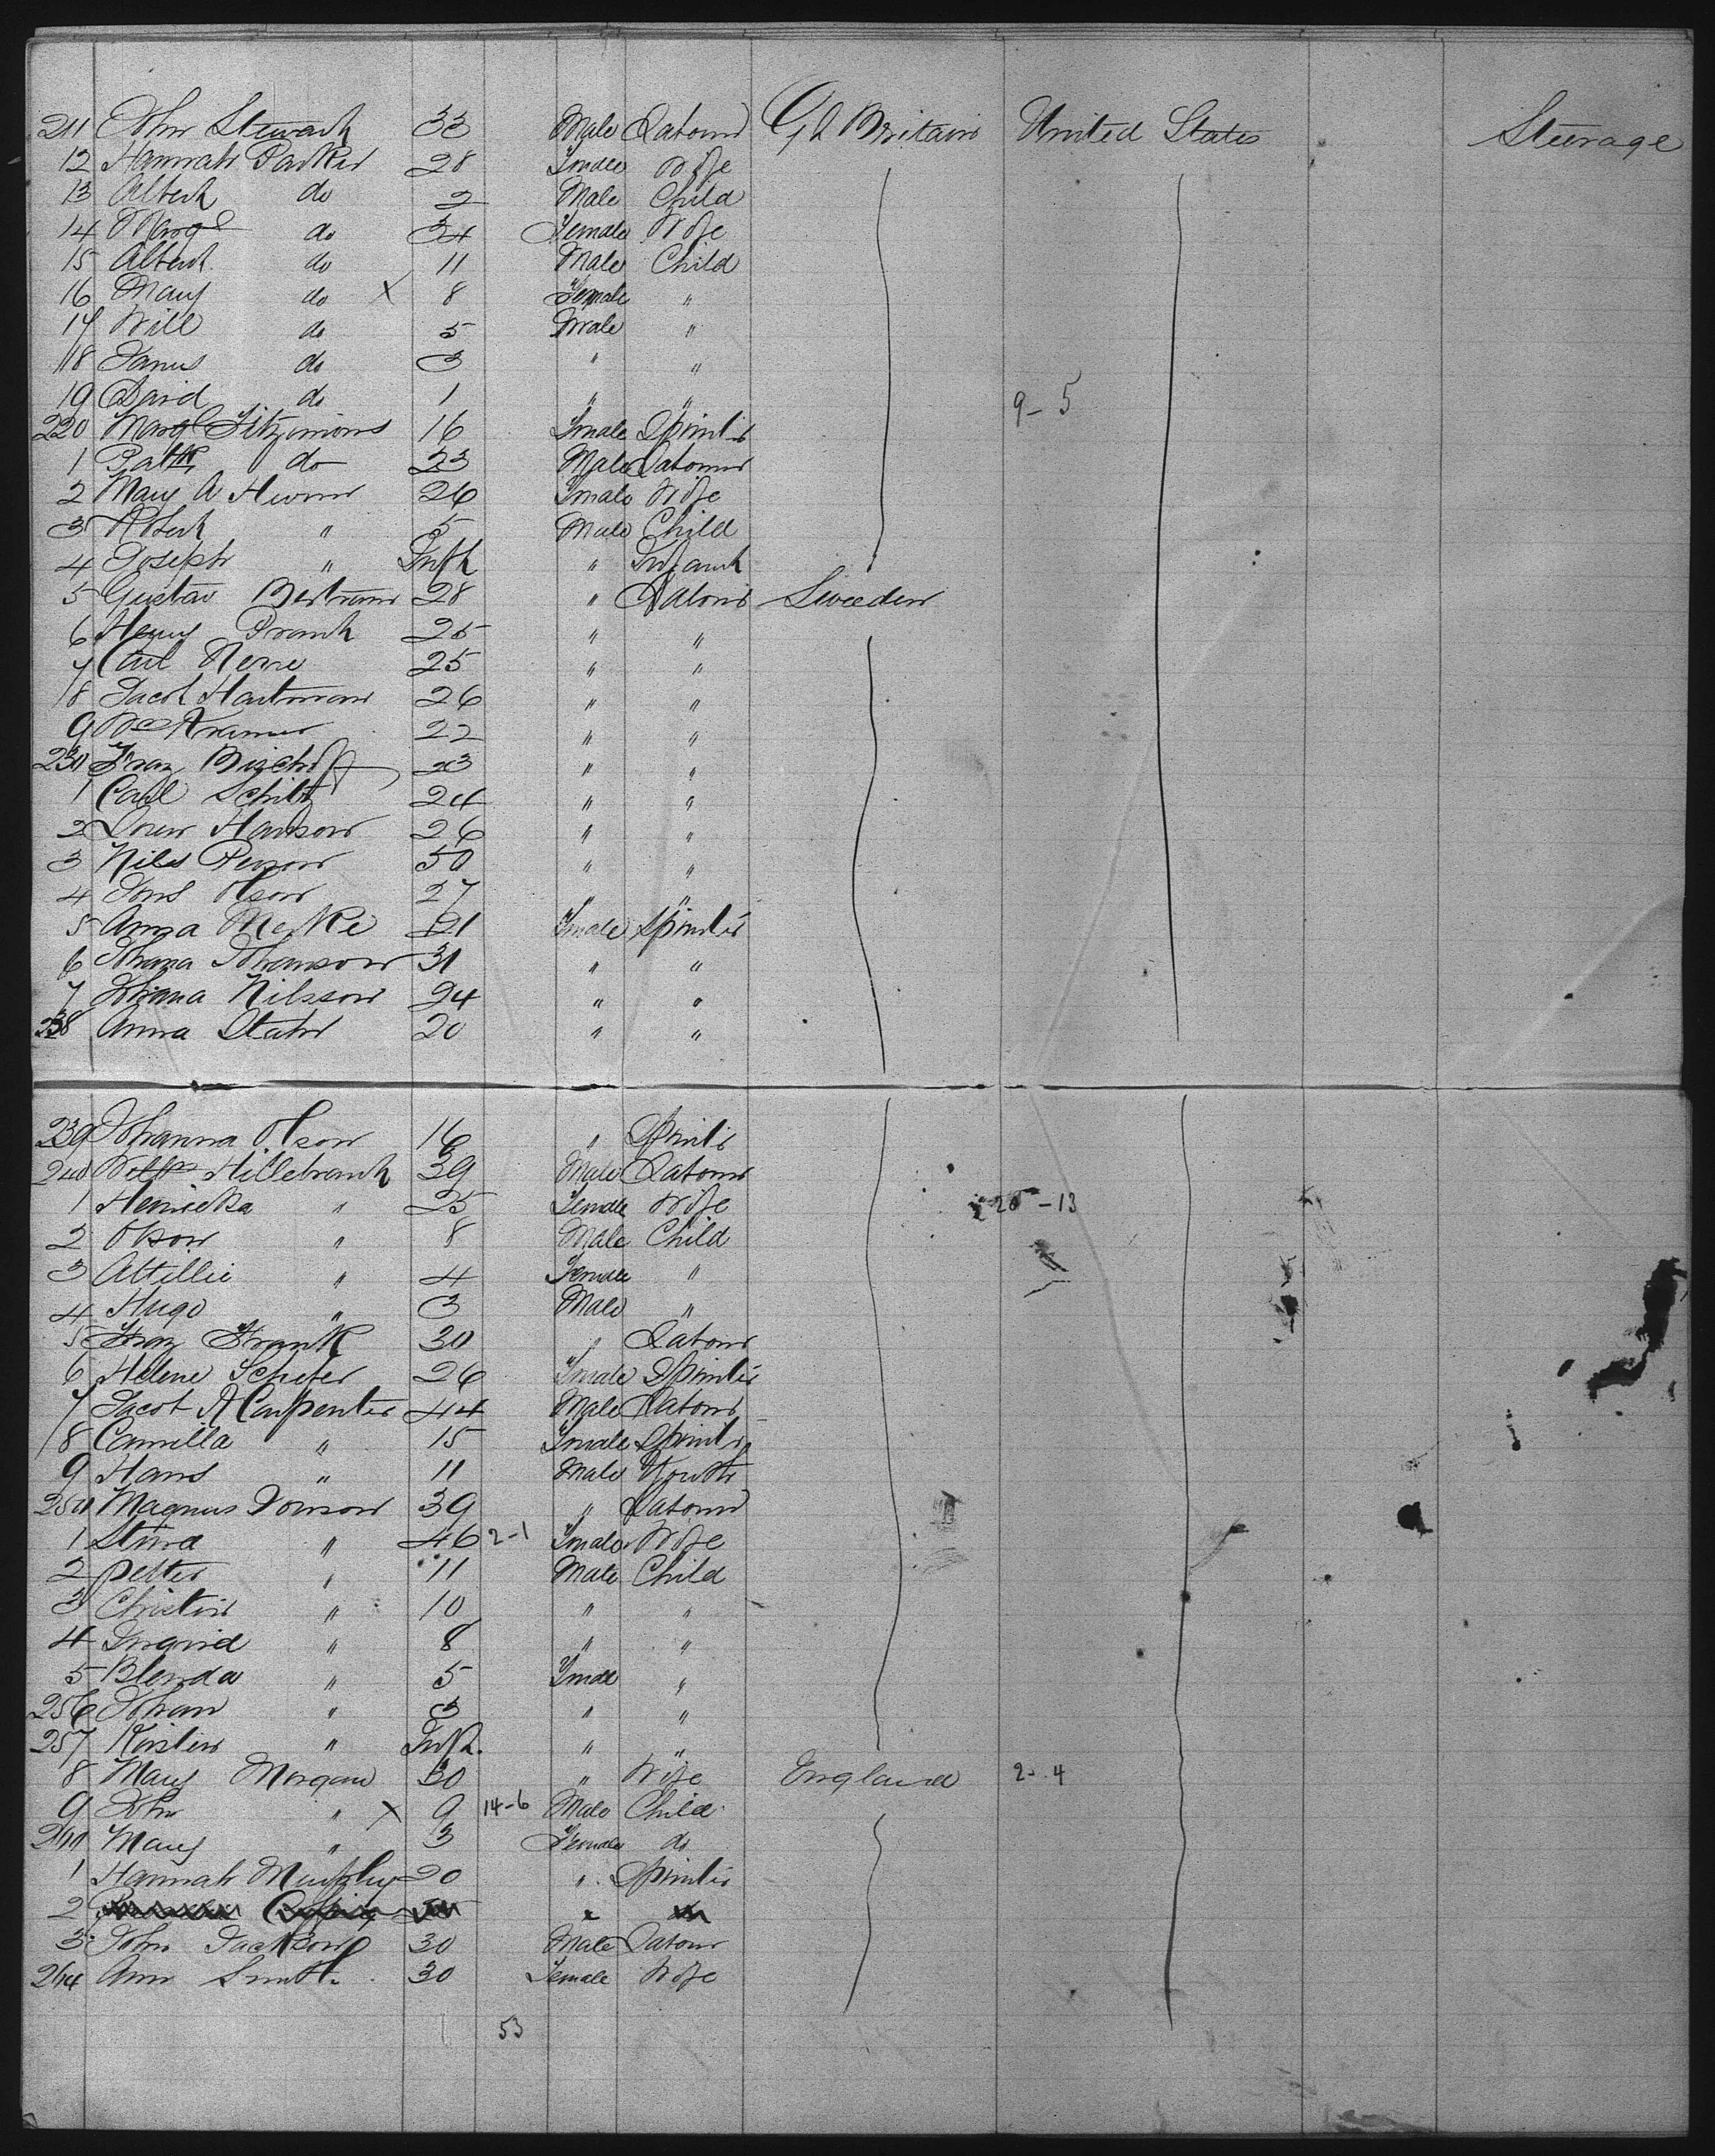 211 John Stewart 33 Male Labourer Gt Britain United States Steerage
12 Hannah Parker 28 Female Wife
13 Albert do 2 Male Child
14 Margt do 34 Female Wife
15 Albert do 11 Male Child
16 Mary do X 8 Female "
17 Will do 5 Male "
18 James do 3 " "
19 David do 1 " " 9-5
220 Margt Fitzimons 16 Female Spinster
1 Patk do 23 Male Labourer
2 Mary A 26 Female Wife
3 Robert " 5 Male Child
4 Joseph " Inft " Infant
5 Gustav 28 " Labour Sweeden
6 Henry 25 " "
7 Carl 25 " "
8 Jacob Hartman 26 " "
9 Wm Kramer 22 " "
230 Franz Bischoff 23 " "
1 Carl Schiltz 24 " "
2 Hanson 26 " "
3 Nils Person 50 " "
4 Jons Olson 27 " "
5 Anna 21 Female Spinster
6 Johana Johanson 31 " "
7 Johana Nilsson 24 " "
238 Anna Stahl 20 " "
239 Johanna Olson 16 " Spinster
240 Willm Hillebrandt 39 Male Labour
1 Henrieka " 25 Female Wife 26-13
2 " 8 Male Child
3 Attillie " 4 Female "
4 Hugo " 3 Male "
5 Franz Frank 30 " Labour
6 Helene Schefer 26 Female Spinster
7 Jacob A Carpenter 44 Male Labour
8 Camilla " 15 Female Spinster
9 Hans " 11 Male Youth
250 Magnus Jonson 39 " Labour
1 Stina " 46 2-1 Female Wife
2 Petter " 11 Male Child
3 Christin " 10 " "
4 Ingrid " 8 " "
5 Blenda " 5 Female "
256 Johan " 3 " "
257 Kirstin " Inft. " "
8 Mary Morgan 30 " Wife England 2-4
9 John " X 9 14-6 Male Child
Mary " 3 Female do
1 Hannah Murphy 20 " Spinster
2
3 John Jackson 30 Male Labour
264 Ann Smith 30 Female Wife
53